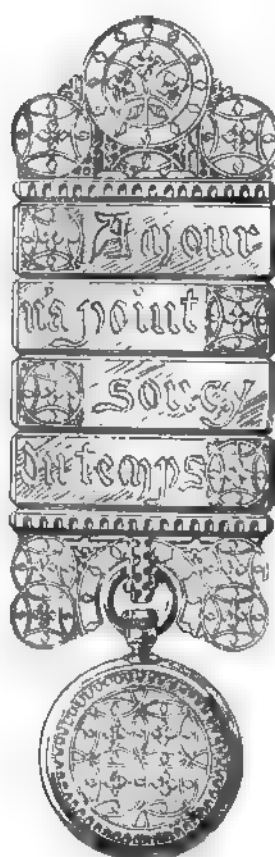 Amour
n'a point
soucy
du temps